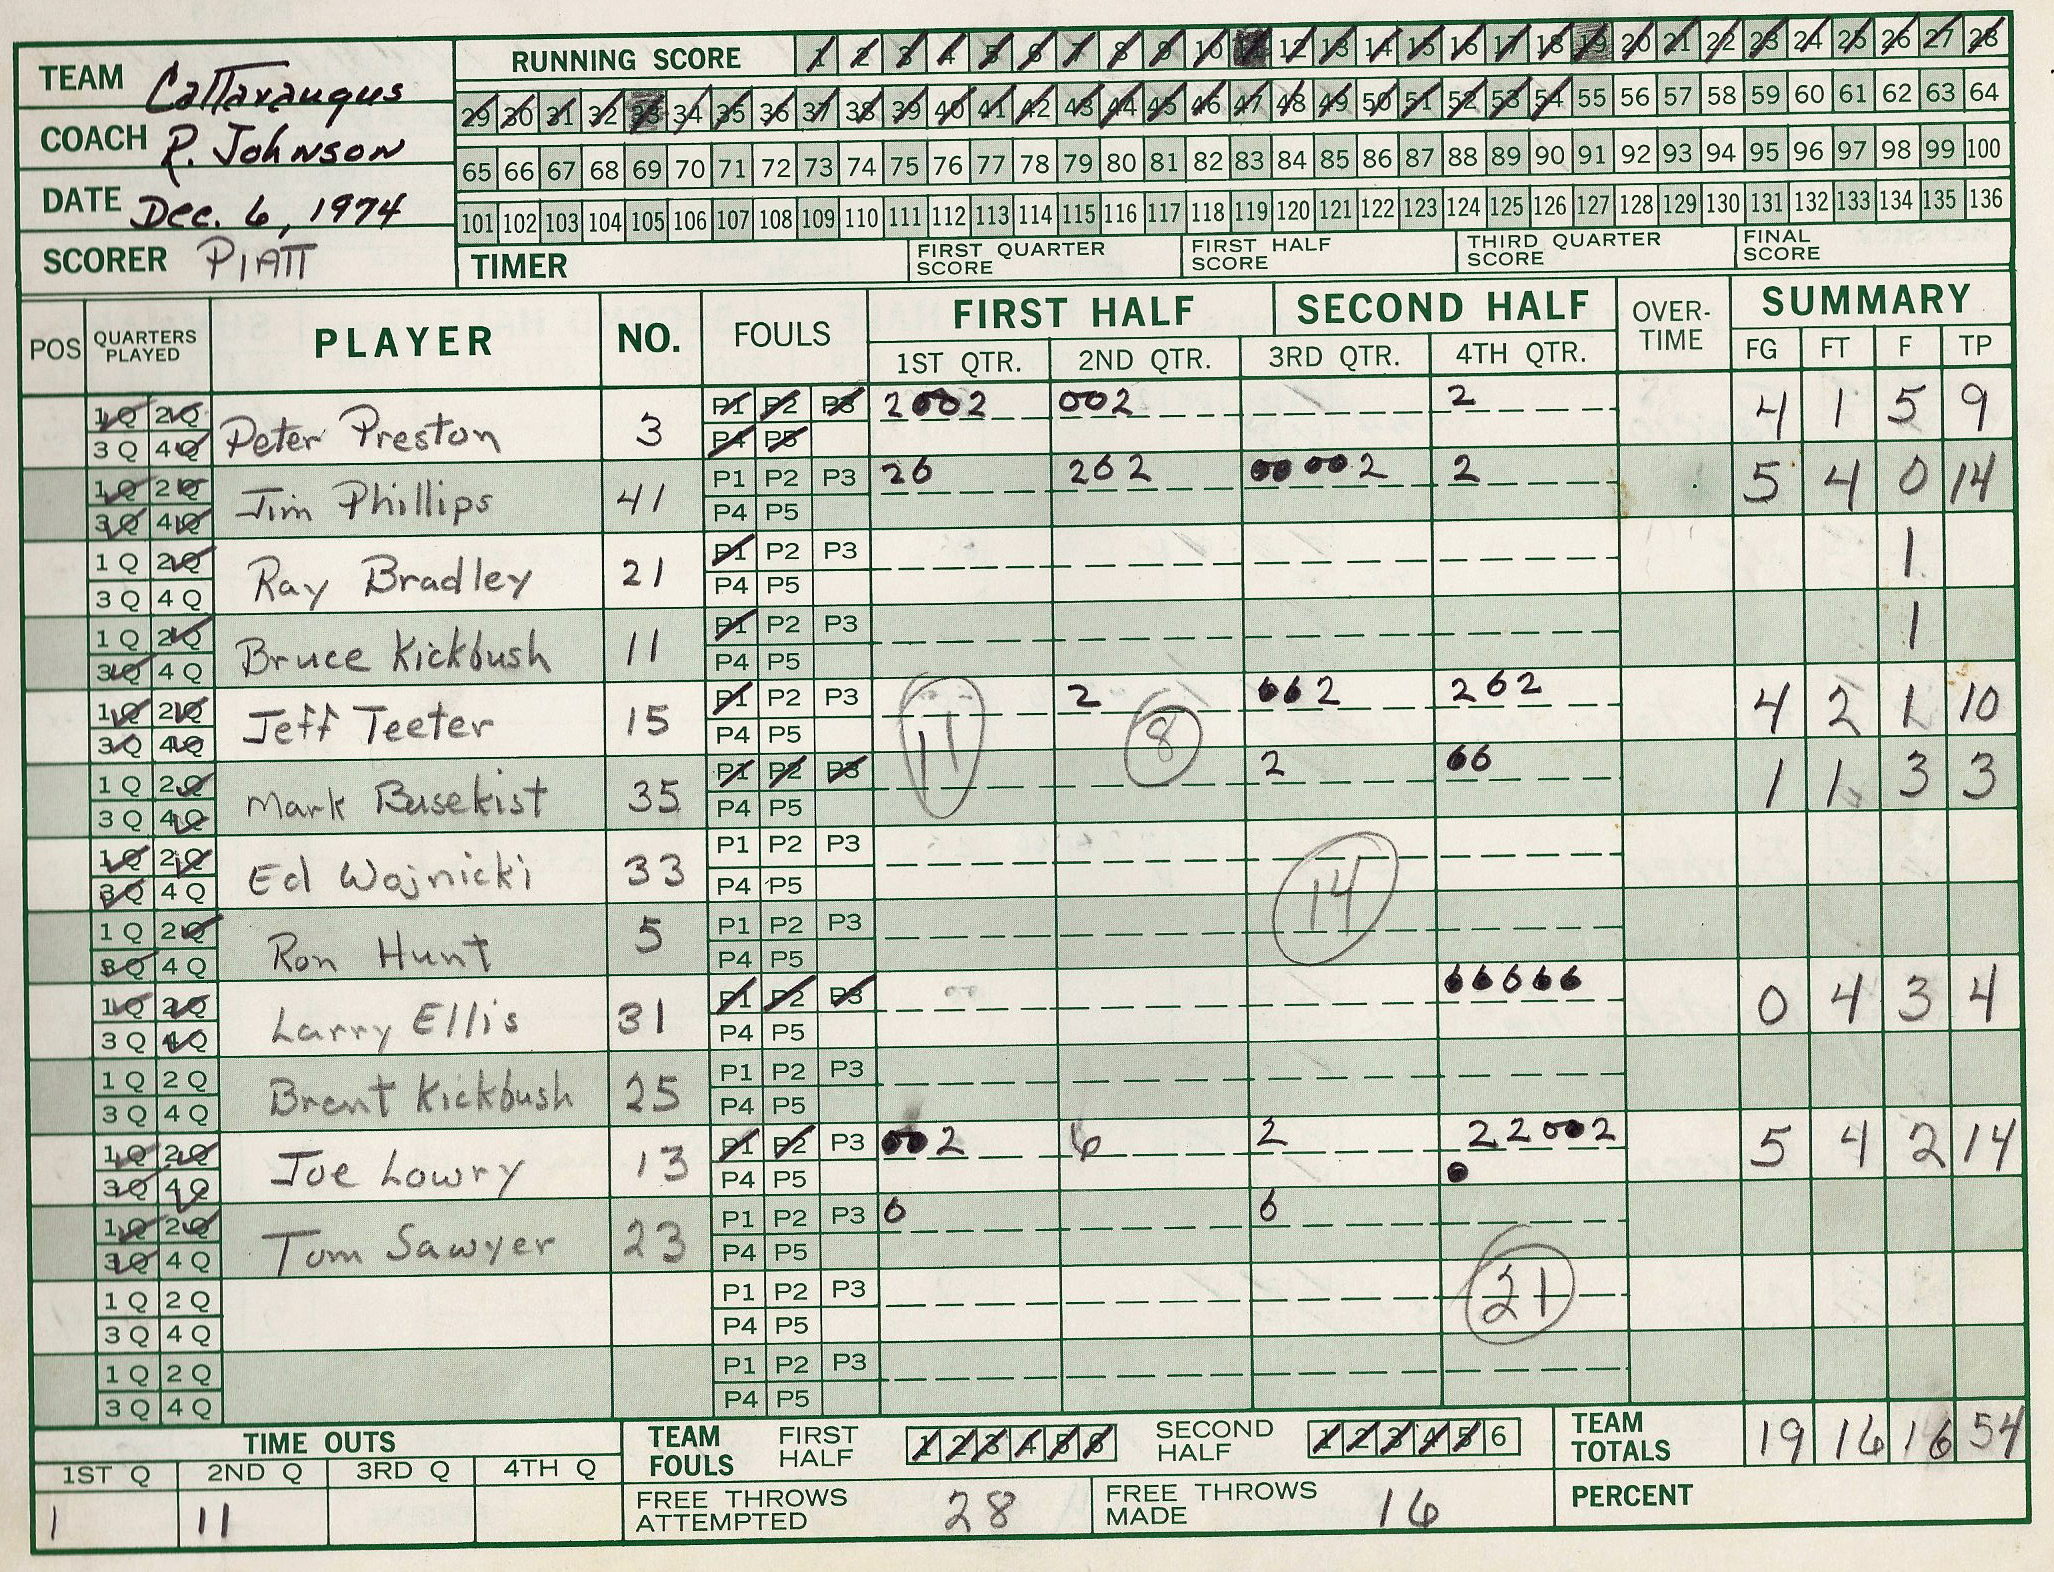 TEAM Cattaraugus
COACH R. Johnson
DATE Dec. 6, 1974
SCORER PIATT
RUNNING SCORE 1 2 3 4 5 6 7 8 9 10 11 12 13 14 15 16 17 18 19 20 21 22 23 24 25 26 27 28
29 30 31 32 33 34 35 36 37 38 39 40 41 42 43 44 45 46 47 48 49 50 51 52 53 54 55 56 57 58 59 60 61 62 63 64
65 66 67 68 69 70 71 72 73 74 75 76 77 78 79 80 81 82 83 84 85 86 87 88 89 90 91 92 93 94 95 96 97 98 99 100
101 102 103 104 105 106 107 108 109 110 111 112 113 114 115 116 117 118 119 120 121 122 123 124 125 126 127 128 129 130 131 132 133 134 135 136
TIMER FIRST QUARTER SCORE FIRST HALF SCORE THIRD QUARTER SCORE FINAL SCORE
POS QUARTERS PLAYED PLAYER NO. FOULS FIRST HALF SECOND HALF OVER-TIME SUMMARY
1ST QTR. 2ND QTR. 3RD QTR. 4TH QTR. FG FT F TP
1 Q 2 Q Peter Preston 3 P1 P2 P3 2002 002 2 4 1 5 9
3 Q 4 Q P4 P5
1 Q 2 Q Jim Phillips 41 P1 P2 P3 26 262 00002 2 5 4 0 14
3 Q 4 Q P4 P5
1 Q 2 Q Ray Bradley 21 P1 P2 P3 1
3 Q 4 Q P4 P5
1 Q 2 Q Bruce Kickbush 11 P1 P2 P3 1
3 Q 4 Q P4 P5
1 Q 2 Q Jeff Teeter 15 P1 P2 P3 2 662 262 4 2 1 10
3 Q 4 Q P4 P5 11 8
1 Q 2 Q Mark Busekist 35 P1 P2 P3 2 66 1 1 3 3
3 Q 4 Q P4 P5
1 Q 2 Q Ed Wojnicki 33 P1 P2 P3
3 Q 4 Q P4 P5 14
1 Q 2 Q Ron Hunt 5 P1 P2 P3
3 Q 4 Q P4 P5
1 Q 2 Q Larry Ellis 31 P1 P2 P3 66666 0 4 3 4
3 Q 4 Q P4 P5
1 Q 2 Q Brent Kickbush 25 P1 P2 P3
3 Q 4 Q P4 P5
1 Q 2 Q Joe Lowry 13 P1 P2 P3 002 6 2 22002 5 4 2 14
3 Q 4 Q P4 P5 0
1 Q 2 Q Tom Sawyer 23 P1 P2 P3 6 6
3 Q 4 Q P4 P5
1 Q 2 Q P1 P2 P3 21
3 Q 4 Q P4 P5
1 Q 2 Q P1 P2 P3
3 Q 4 Q P4 P5
TIME OUTS TEAM FOULS FIRST HALF 1 2 3 4 5 6 SECOND HALF 1 2 3 4 5 6 TEAM TOTALS 19 16 16 54
1ST Q 2ND Q 3RD Q 4TH Q
1 11 FREE THROWS ATTEMPTED 28 FREE THROWS MADE 16 PERCENT